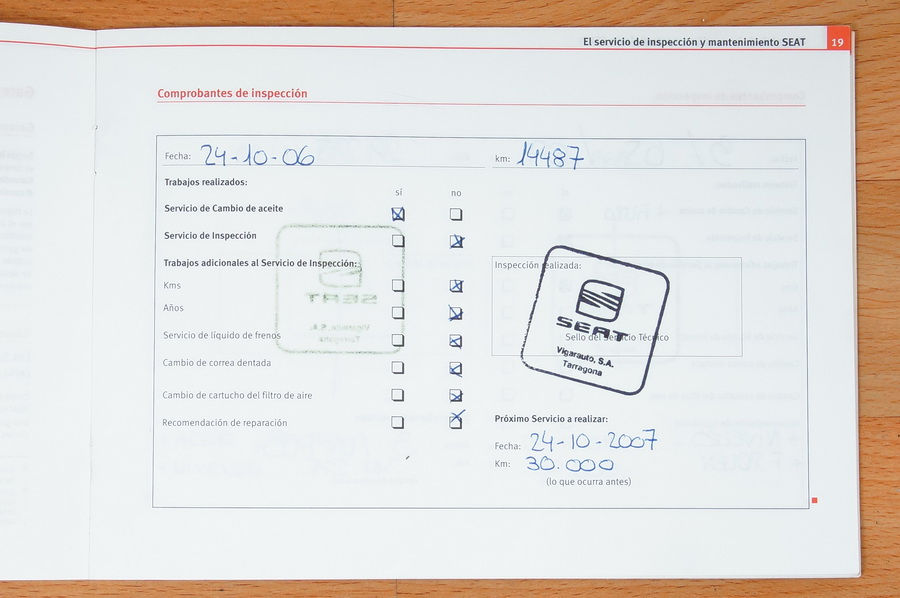 El servicio de inspección y mantenimiento SEAT 19
Comprobantes de inspección
Fecha: 24-10-06 km: 14487
Trabajos realizados:
sí no
Servicio de Cambio de aceite
Servicio de Inspección
Trabajos adicionales al Servicio de Inspección:
Kms
Años
Servicio de líquido de frenos
Cambio de correa dentada
Cambio de cartucho del filtro de aire
Recomendación de reparación
Inspección realizada:
SEAT
Sello del Servicio Técnico
Vigarauto, S.A.
Tarragona
Próximo Servicio a realizar:
Fecha: 24-10-2007
Km: 30.000
(lo que ocurra antes)